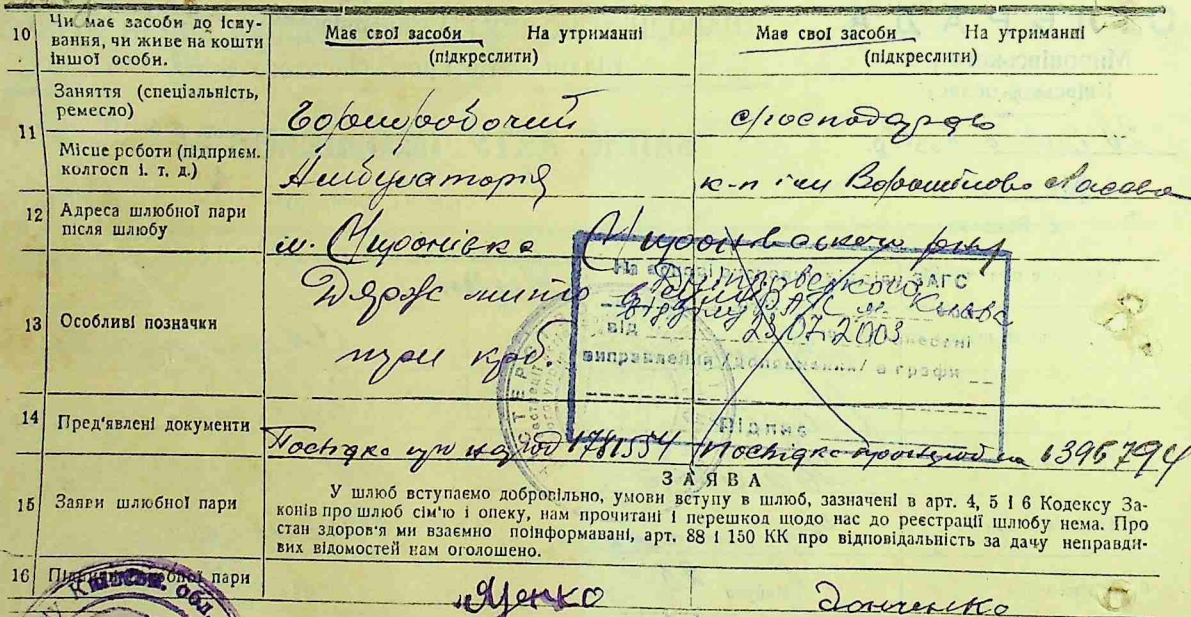 10 Чи має засоби до існу-
вання, чи живе на кошти
іншої особи.
Має свої засоби На утриманні
(підкреслити)
Має свої засоби На утриманні
(підкреслити)
11 Заняття (спеціальність,
ремесло)
Місце роботи (підприєм.
колгосп і. т. д.)
Амбулаторія
к-п ім Ворошилова
12 Адреса шлюбної пари
після шлюбу
м. Миронівка Миронівського р-ну
13 Особливі позначки
Держ мито
три крб.
ЗАГС
відділу РАГС м. Києва
від 23.07.2003 внесені
виправлення /доповнення/ в графи
Підпис
14 Пред'явлені документи
Посвідка про народ 1781554 Посвідка про 6396794
15 Заяви шлюбної пари
ЗАЯВА
У шлюб вступаємо добровільно, умови вступу в шлюб, зазначені в арт. 4, 5 і 6 Кодексу За-
конів про шлюб сім'ю і опеку, нам прочитані і перешкод щодо нас до реєстрації шлюбу нема. Про
стан здоров'я ми взаємно поінформавані, арт. 88 і 150 КК про відповідальність за дачу неправди-
вих відомостей нам оголошено.
16 Підписи шлюбної пари
Яценко Донченко